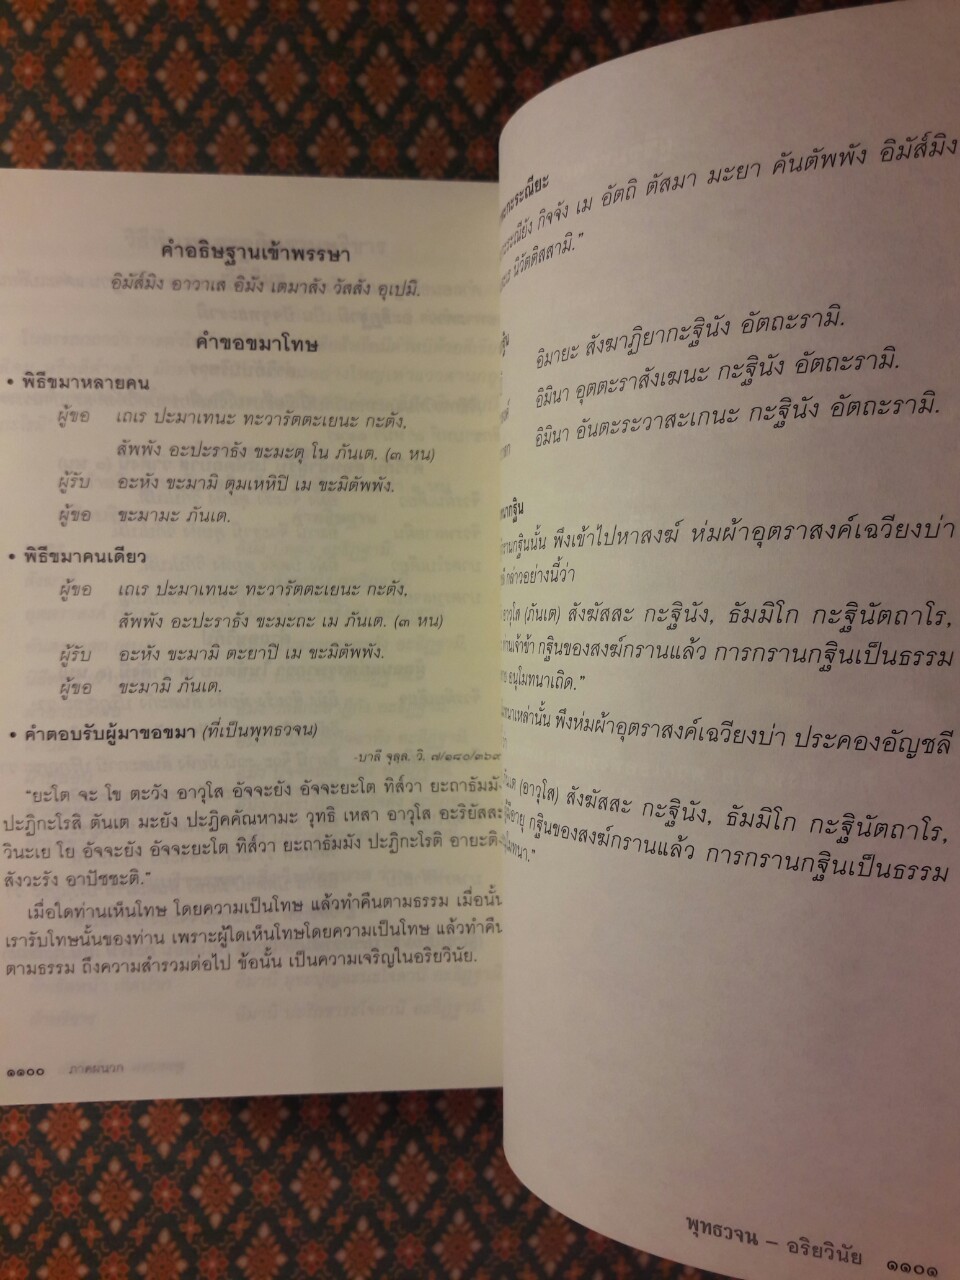 คำอธิษฐานเข้าพรรษา
อิมัส์มิง อาวาเส อิมัง เตมาสัง วัสสัง อุเปมิ.
คำขอขมาโทษ
• พิธีขมาหลายคน
ผู้ขอ เถเร ปะมาเทนะ ทะวารัตตะเยนะ กะตัง,
สัพพัง อะปะราธัง ขะมะตุ โน ภันเต. (๓ หน)
ผู้รับ อะหัง ขะมามิ ตุมเหหิปิ เม ขะมิตัพพัง.
ผู้ขอ ขะมามะ ภันเต.
• พิธีขมาคนเดียว
ผู้ขอ เถเร ปะมาเทนะ ทะวารัตตะเยนะ กะตัง,
สัพพัง อะปะราธัง ขะมะถะ เม ภันเต. (๓ หน)
ผู้รับ อะหัง ขะมามิ ตะยาปิ เม ขะมิตัพพัง.
ผู้ขอ ขะมามิ ภันเต.
• คำตอบรับผู้มาขอขมา (ที่เป็นพุทธวจน)
-บาลี จุลฺล. วิ. ๗/๑๘๐/๓๖๙
“ยะโต จะ โข ตะวัง อาวุโส อัจจะยัง อัจจะยะโต ทิส์วา ยะถาธัมมัง
ปะฏิกะโรสิ ตันเต มะยัง ปะฏิคคัณหามะ วุทธิ เหสา อาวุโส อะริยัสสะ
วินะเย โย อัจจะยัง อัจจะยะโต ทิส์วา ยะถาธัมมัง ปะฏิกะโรติ อายะติง
สังวะรัง อาปัชชะติ.”
เมื่อใดท่านเห็นโทษ โดยความเป็นโทษ แล้วทำคืนตามธรรม เมื่อนั้น
เรารับโทษนั้นของท่าน เพราะผู้ใดเห็นโทษโดยความเป็นโทษ แล้วทำคืน
ตามธรรม ถึงความสำรวมต่อไป ข้อนั้น เป็นความเจริญในอริยวินัย.
๑๑๐๐ ภาคผนวก
กะระณียะ
กะระณียัง กิจจัง เม อัตถิ ตัสมา มะยา คันตัพพัง อิมัส์มิง
นิวัตติสสามิ.”
อิมายะ สังฆาฏิยากะฐินัง อัตถะรามิ.
อิมินา อุตตะราสังเฆนะ กะฐินัง อัตถะรามิ.
อิมินา อันตะระวาสะเกนะ กะฐินัง อัตถะรามิ.
กฐิน
กฐินนั้น พึงเข้าไปหาสงฆ์ ห่มผ้าอุตราสงค์เฉวียงบ่า
กล่าวอย่างนี้ว่า
อาวุโส (ภันเต) สังฆัสสะ กะฐินัง, ธัมมิโก กะฐินัตถาโร,
กฐินของสงฆ์กรานแล้ว การกรานกฐินเป็นธรรม
อนุโมทนาเถิด.”
เหล่านั้น พึงห่มผ้าอุตราสงค์เฉวียงบ่า ประคองอัญชลี
(อาวุโส) สังฆัสสะ กะฐินัง, ธัมมิโก กะฐินัตถาโร,
กฐินของสงฆ์กรานแล้ว การกรานกฐินเป็นธรรม
พุทธวจน – อริยวินัย ๑๑๐๑